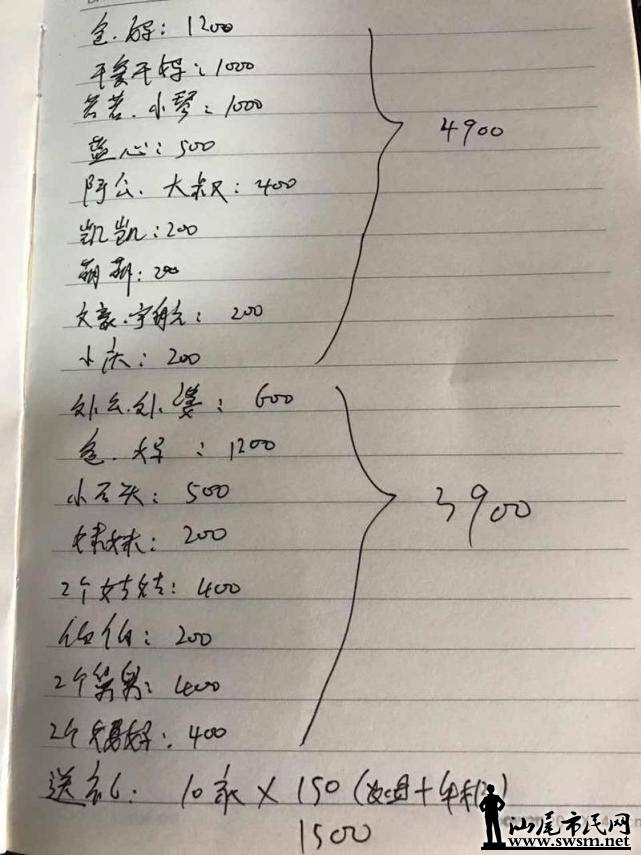 爸.妈：1200
干爹干妈：1000
小琴：1000
蓝心：500
阿公.大叔：400
凯凯：200
萌萌：200
文豪.宇航：200
小庆：200
4900
外公.外婆：600
爸.妈：1200
小石头：500
妹妹：200
2个姑姑：400
伯伯：200
2个舅舅：400
2个：400
3900
送礼：10家×150（
1500
汕尾市民网
www.swsm.net